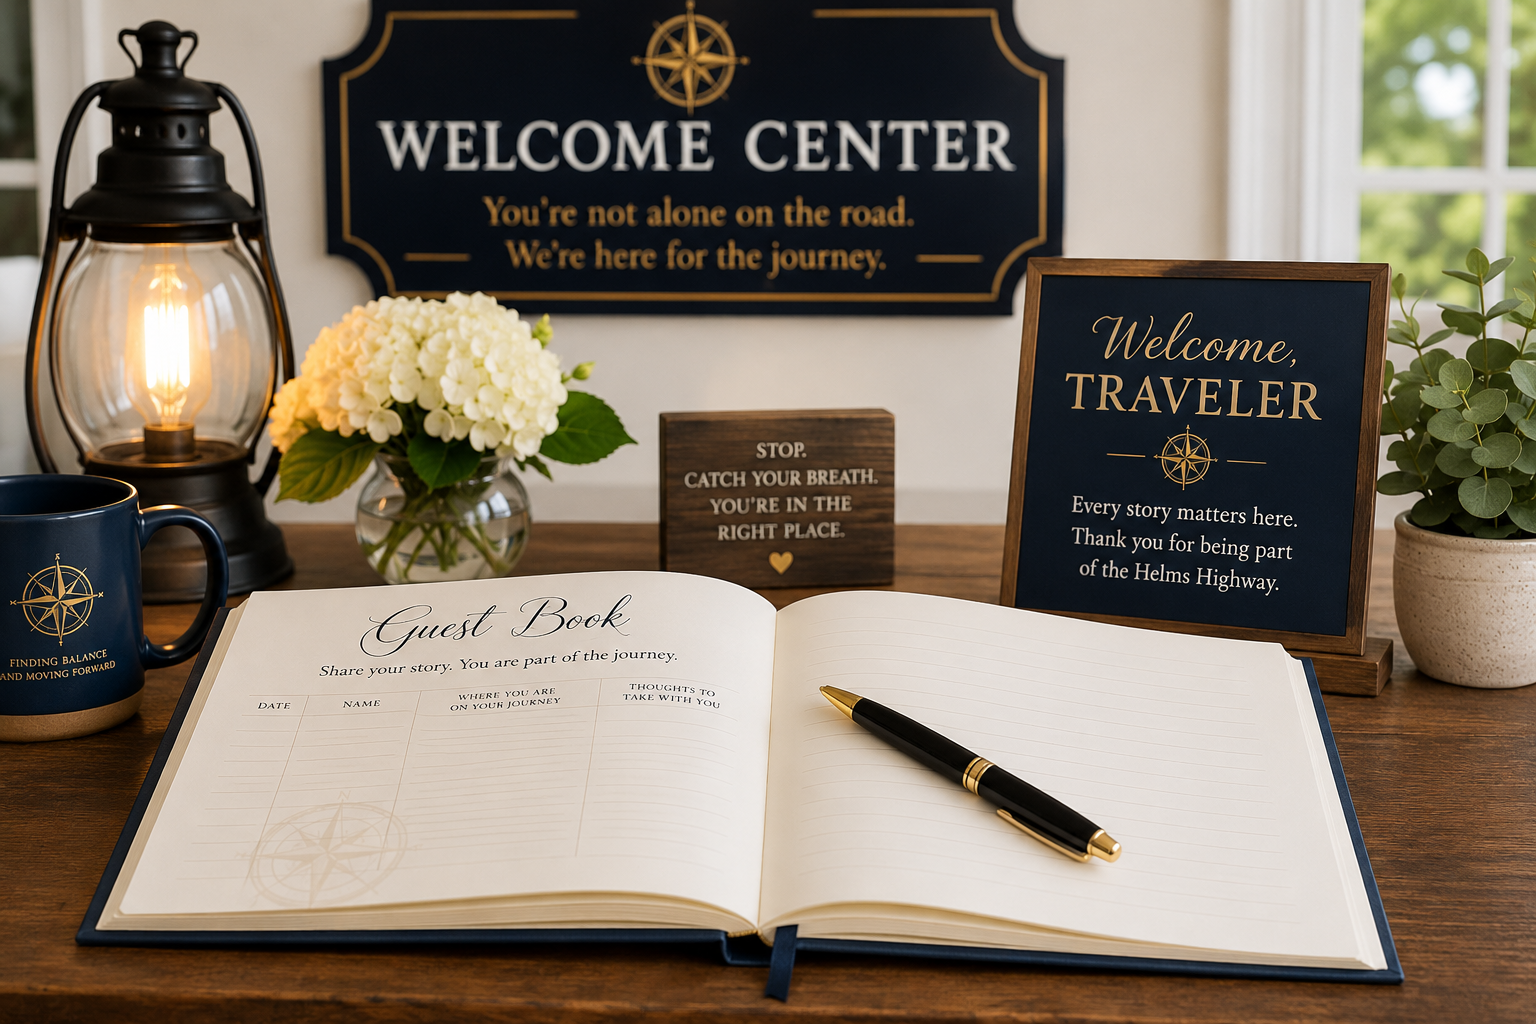 WELCOME CENTER
You're not alone on the road.
We're here for the journey.
Welcome,
TRAVELER
Every story matters here.
Thank you for being part
of the Helms Highway.
STOP.
CATCH YOUR BREATH.
YOU'RE IN THE
RIGHT PLACE.
FINDING BALANCE
AND MOVING FORWARD
Guest Book
Share your story. You are part of the journey.
DATE
NAME
WHERE YOU ARE
ON YOUR JOURNEY
THOUGHTS TO
TAKE WITH YOU